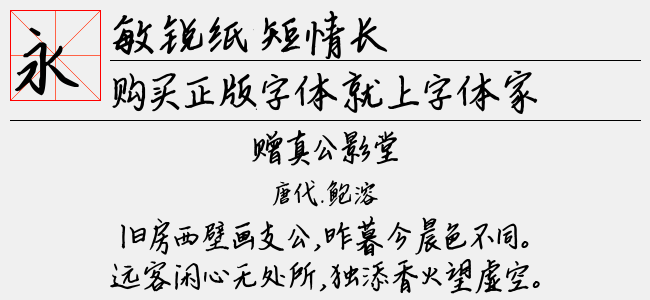 永
敏锐纸短情长
购买正版字体就上字体家
赠真公影堂
唐代.鲍溶
旧房西壁画支公,昨暮今晨色不同。
远客闲心无处所,独添香火望虚空。